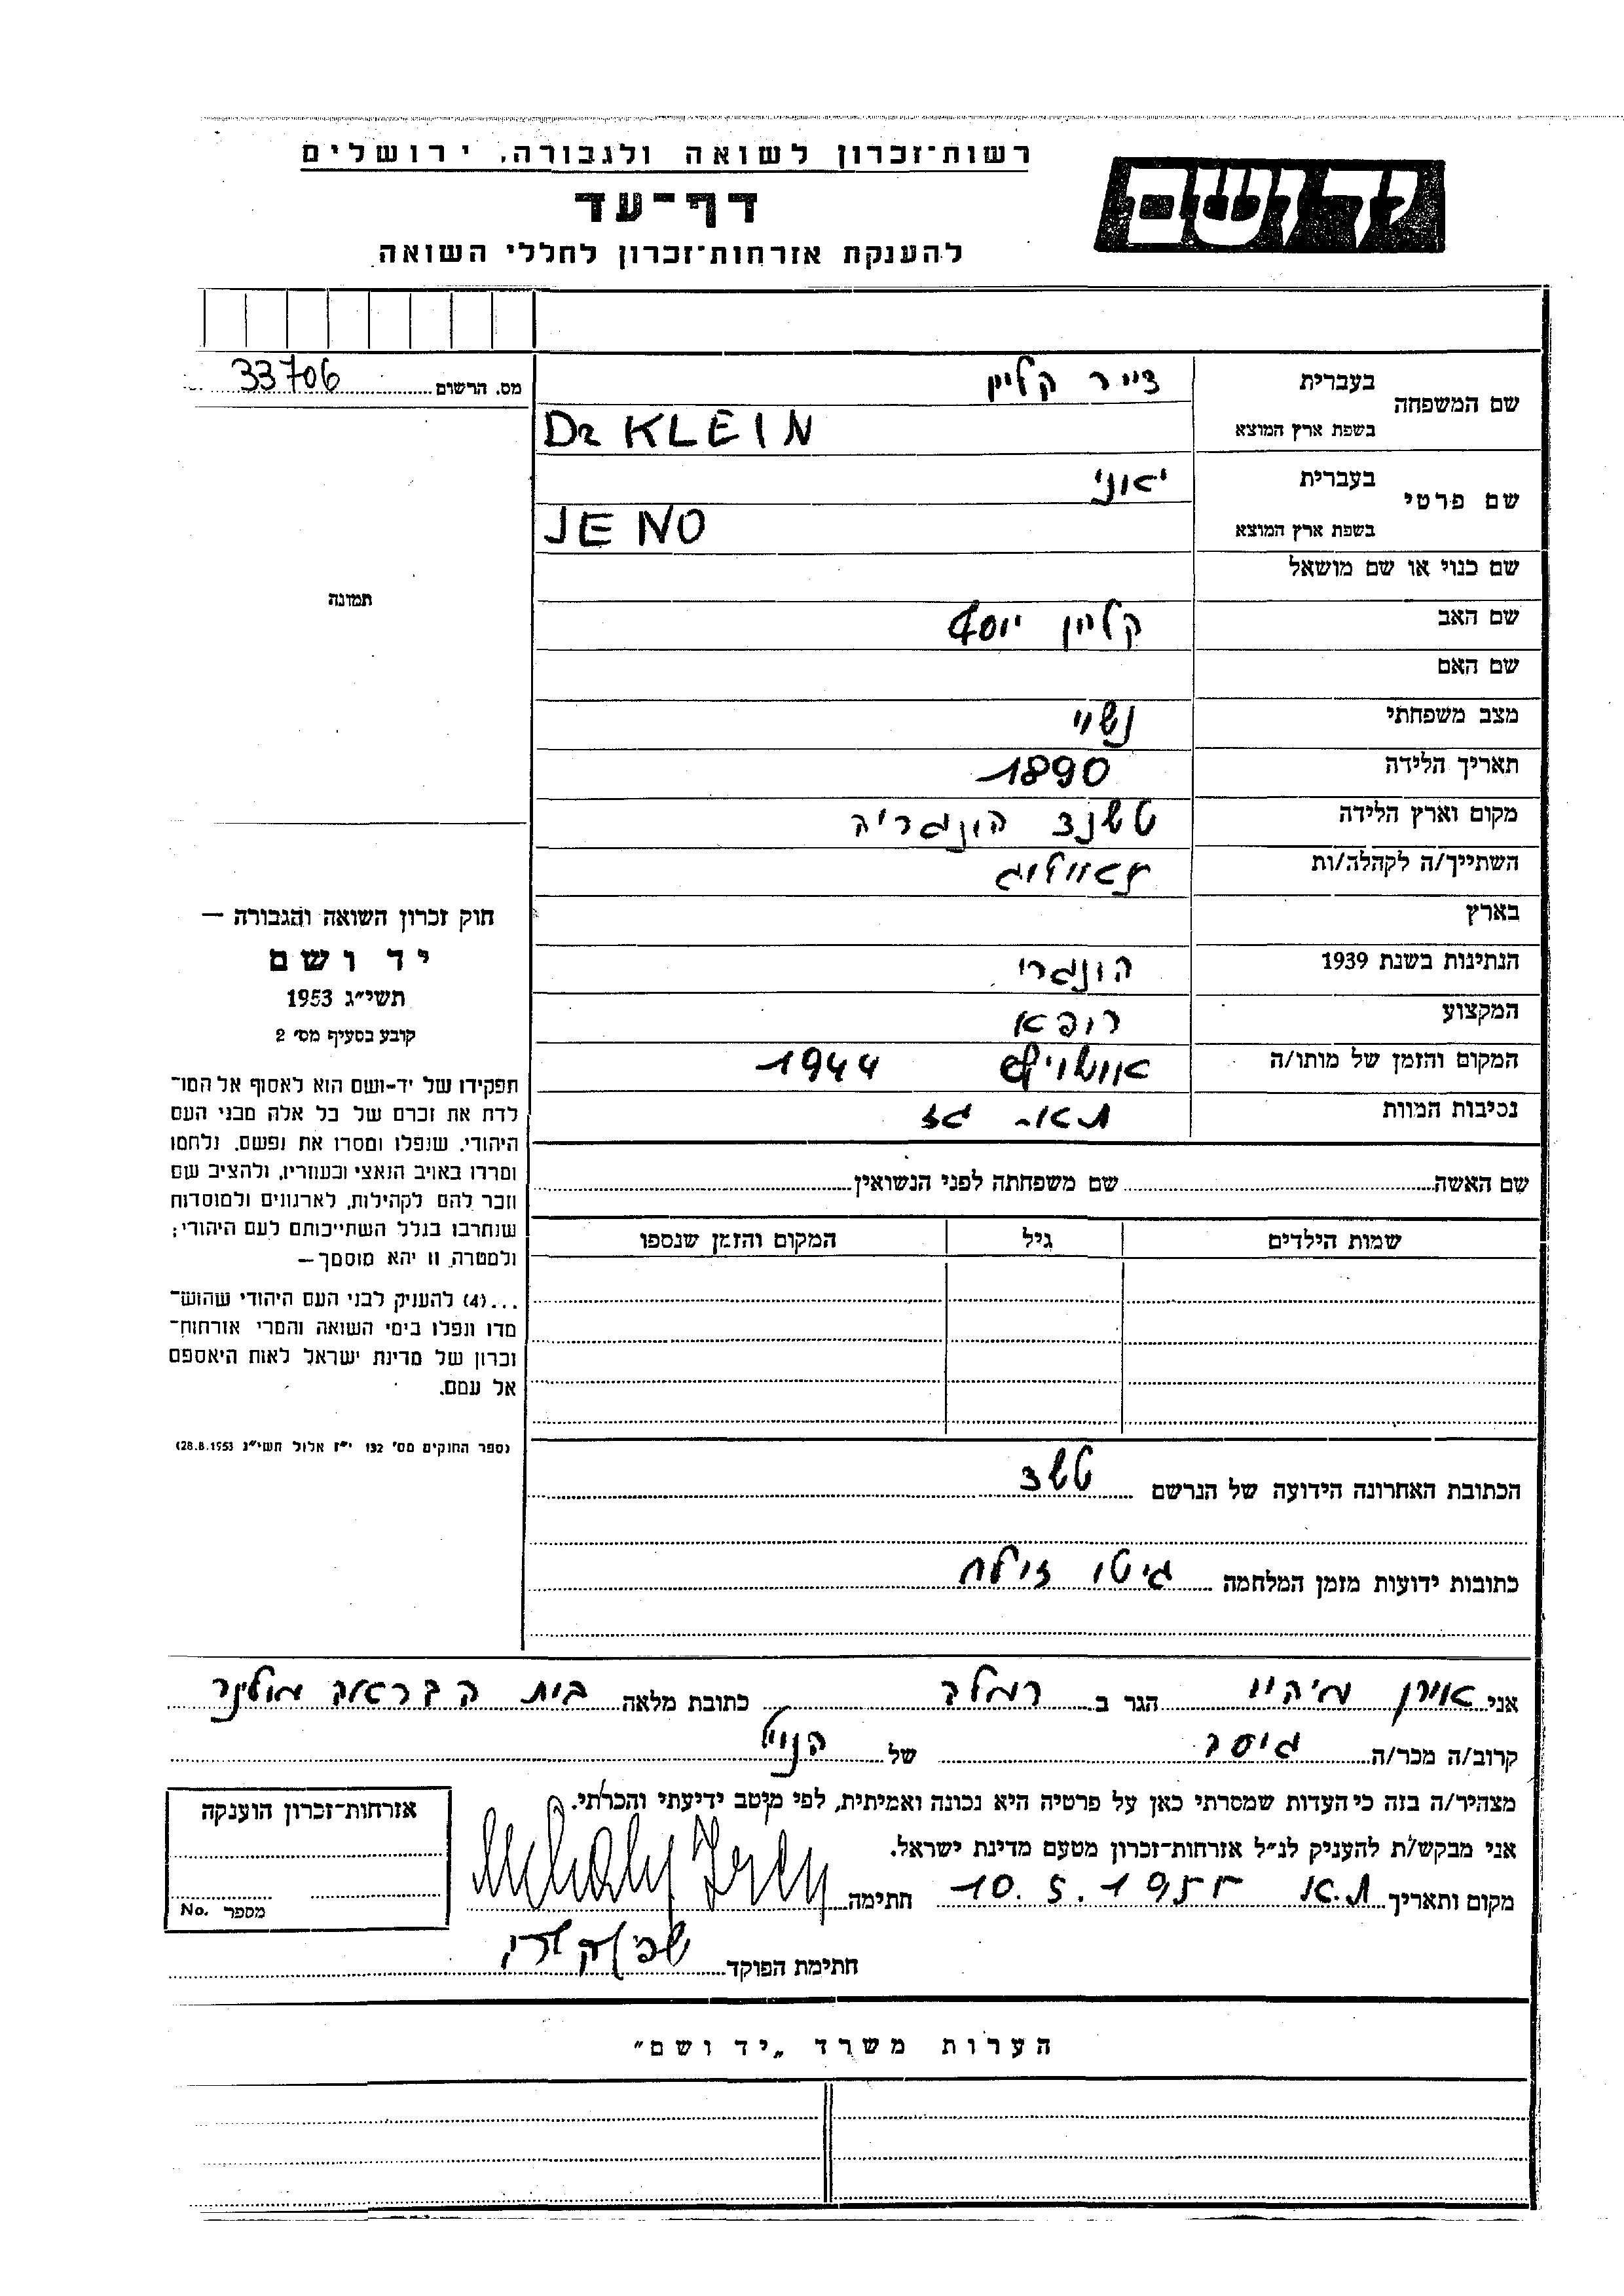 רשות־זכרון לשואה ולגבורה, ירושלים
יד ושם
דף־עד
להענקת אזרחות־זכרון לחללי השואה
מס. הרשום 33706
שם המשפחה
בעברית
קליין
בשפת ארץ המוצא
Dr KLEIN
שם פרטי
בעברית
בשפת ארץ המוצא
JENO
שם כנוי או שם מושאל
תמונה
שם האב קליין יוסף
שם האם
מצב משפחתי נשוי
תאריך הלידה 1890
מקום וארץ הלידה הונגריה
השתייך/ה לקהלה/ות
בארץ
הנתינות בשנת 1939 הונגרי
המקצוע רופא
המקום והזמן של מותו/ה 1944
נסיבות המוות תא גז
שם האשה שם משפחתה לפני הנשואין
שמות הילדים גיל המקום והזמן שנספו
חוק זכרון השואה והגבורה —
יד ושם
תשי״ג 1953
קובע בסעיף מס׳ 2
תפקידו של יד-ושם הוא לאסוף אל המו־
לדת את זכרם של כל אלה מבני העם
היהודי, שנפלו ומסרו את נפשם, נלחמו
ומרדו באויב הנאצי ובעוזריו, ולהציב שם
וזכר להם לקהילות, לארגונים ולמוסדות
שנחרבו בגלל השתייכותם לעם היהודי;
ולמטרה זו יהא מוסמך —
...(4) להעניק לבני העם היהודי שהוש־
מדו ונפלו בימי השואה והמרי אזרחות־
זכרון של מדינת ישראל לאות היאספם
אל עמם.
(ספר החוקים מס׳ 132 י״ז אלול תשי״ג 28.8.1953)
הכתובת האחרונה הידועה של הנרשם
כתובות ידועות מזמן המלחמה גיטו
אני הגר ב רמלה כתובת מלאה בית
קרוב/ה מכר/ה גיסה של הנ״ל
מצהיר/ה בזה כי העדות שמסרתי כאן על פרטיה היא נכונה ואמיתית, לפי מיטב ידיעתי והכרתי.
אני מבקש/ת להעניק לנ״ל אזרחות־זכרון מטעם מדינת ישראל.
מקום ותאריך ת.א. 10.5. חתימה
חתימת הפוקד
אזרחות־זכרון הוענקה
מספר No.
הערות משרד „יד ושם״